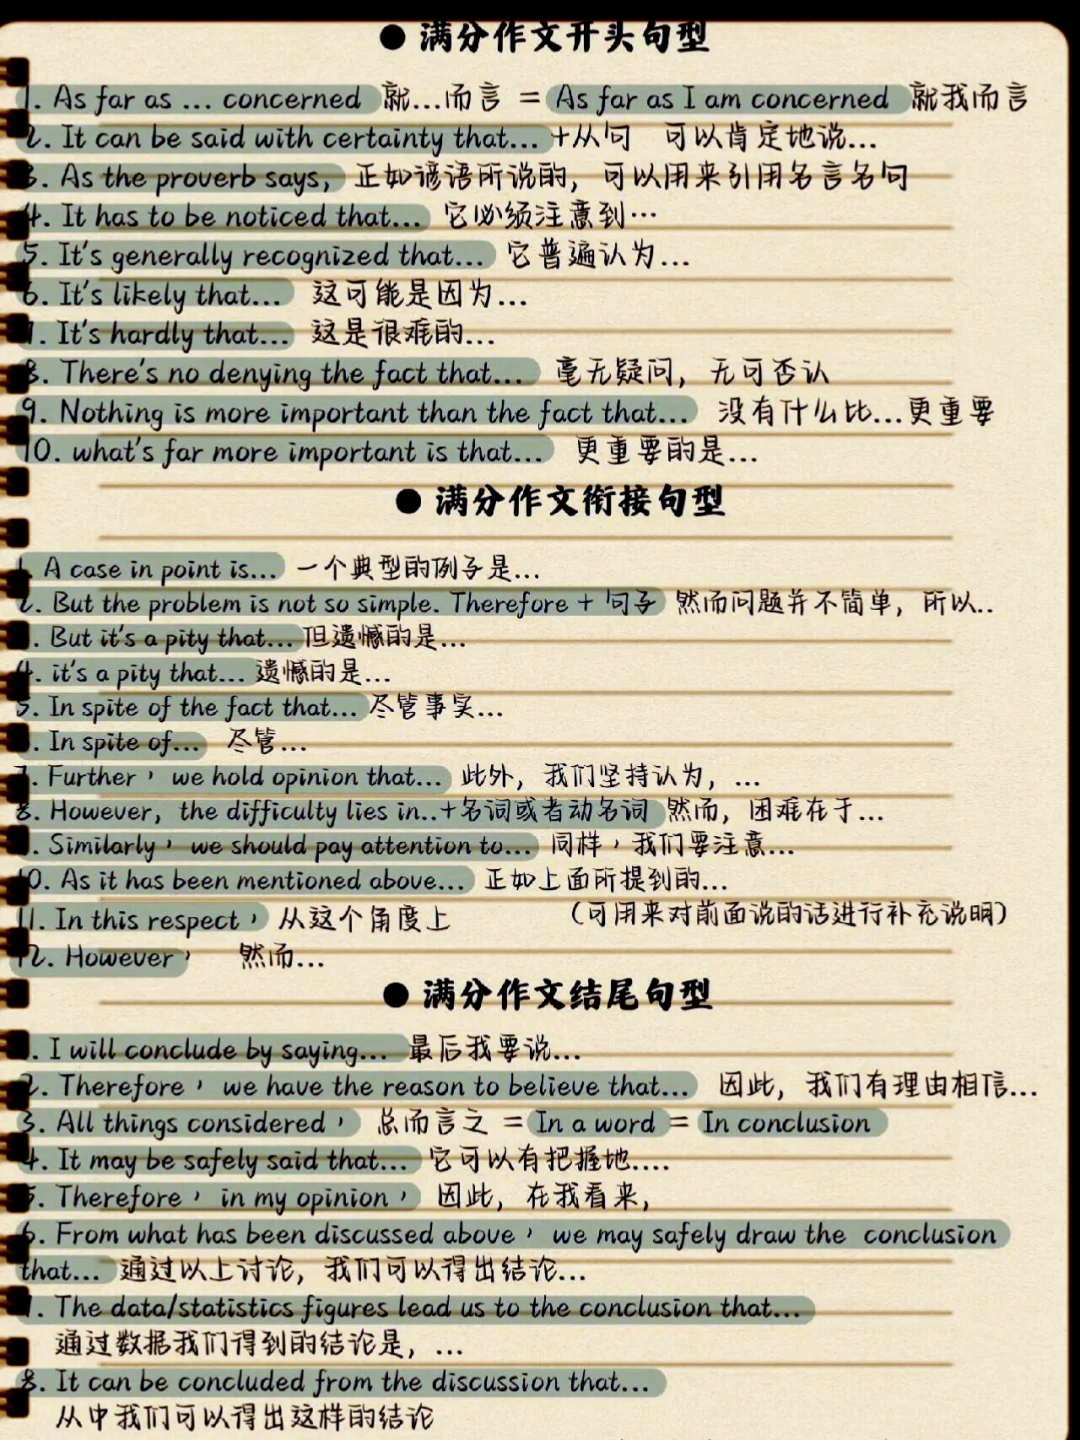 ● 满分作文开头句型
1. As far as ... concerned 就...而言 = As far as I am concerned 就我而言
2. It can be said with certainty that... +从句 可以肯定地说...
3. As the proverb says, 正如谚语所说的, 可以用来引用名言名句
4. It has to be noticed that... 它必须注意到...
5. It's generally recognized that... 它普遍认为...
6. It's likely that... 这可能是因为...
7. It's hardly that... 这是很难的...
8. There's no denying the fact that... 毫无疑问, 无可否认
9. Nothing is more important than the fact that... 没有什么比...更重要
10. what's far more important is that... 更重要的是...
● 满分作文衔接句型
1. A case in point is... 一个典型的例子是...
2. But the problem is not so simple. Therefore + 句子 然而问题并不简单, 所以..
3. But it's a pity that... 但遗憾的是...
4. it's a pity that... 遗憾的是...
5. In spite of the fact that... 尽管事实...
6. In spite of... 尽管...
7. Further, we hold opinion that... 此外, 我们坚持认为, ...
8. However, the difficulty lies in..+名词或者动名词 然而, 困难在于...
9. Similarly, we should pay attention to... 同样, 我们要注意...
10. As it has been mentioned above... 正如上面所提到的...
11. In this respect, 从这个角度上 (可用来对前面说的话进行补充说明)
12. However, 然而...
● 满分作文结尾句型
1. I will conclude by saying... 最后我要说...
2. Therefore, we have the reason to believe that... 因此, 我们有理由相信...
3. All things considered, 总而言之 = In a word = In conclusion
4. It may be safely said that... 它可以有把握地....
5. Therefore, in my opinion, 因此, 在我看来,
6. From what has been discussed above, we may safely draw the conclusion
that... 通过以上讨论, 我们可以得出结论...
7. The data/statistics figures lead us to the conclusion that...
通过数据我们得到的结论是, ...
8. It can be concluded from the discussion that...
从中我们可以得出这样的结论